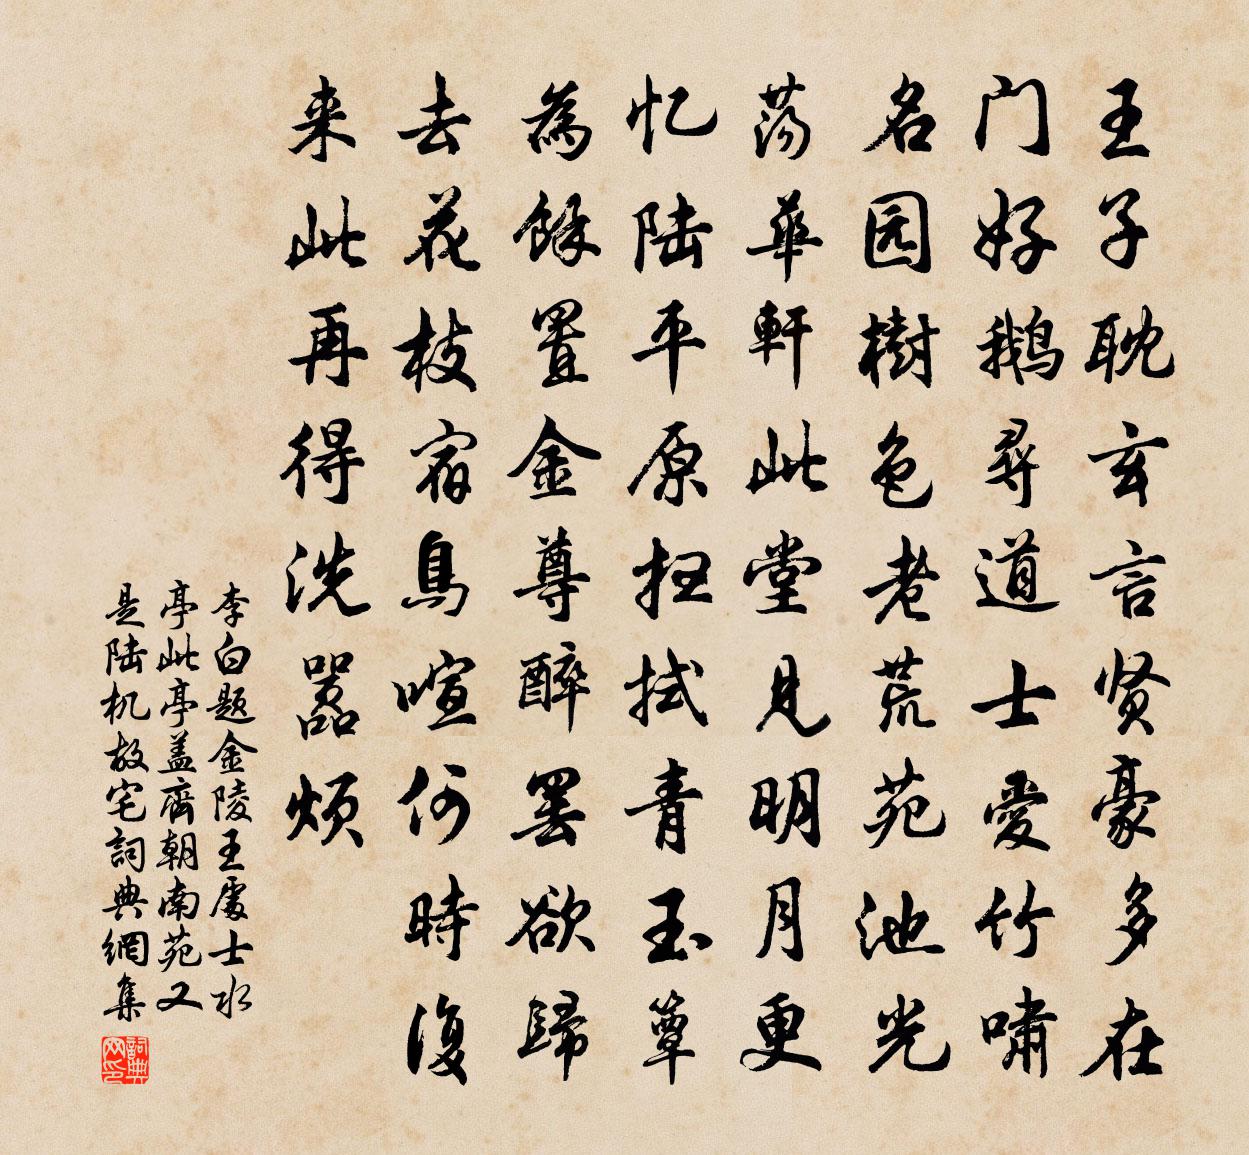 王子耽玄言贤豪多在
门好鹅尋道士愛竹啸
名园樹色老荒苑池光
荡華軒此堂見明月更
忆陆平原扫拭青玉簟
為餘置金尊醉罢欲歸
去花枝宿鳥喧何時復
来此再得洗嚣烦
李白题金陵王處士水
亭此亭盖齊朝南苑又
是陆机故宅詞典網集
詞典网印